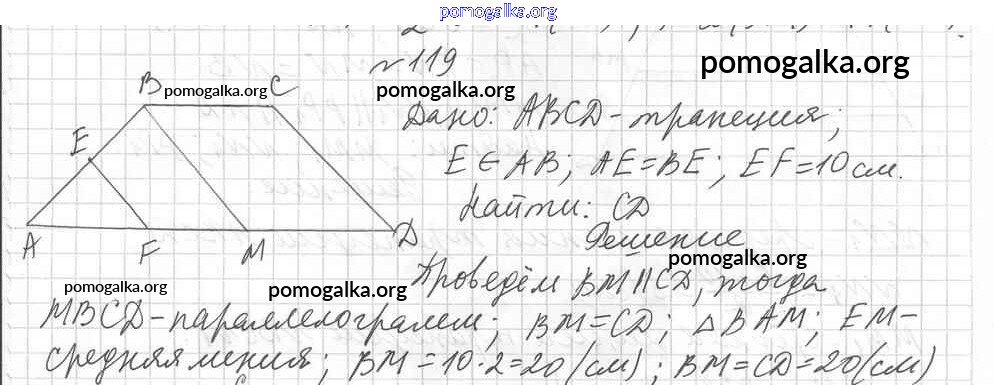 pomogalka.org
№119
pomogalka.org
pomogalka.org
B pomogalka.org C
Дано: ABCD-трапеция;
E
E ∈ AB; AE=BE; EF=10см.
Найти: CD
A F M D
Решение
pomogalka.org
Проведём BM||CD, тогда
pomogalka.org
pomogalka.org
MBCD-параллелограмм; BM=CD; △BAM; EM-
средняя линия; BM=10·2=20(см); BM=CD=20(см)